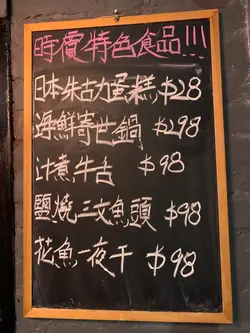 時價特色食品!!!
日本朱古力蛋糕$28
海鮮寄世鍋 $298
汁煮牛舌 $98
鹽燒三文魚頭 $98
花魚一夜干 $98